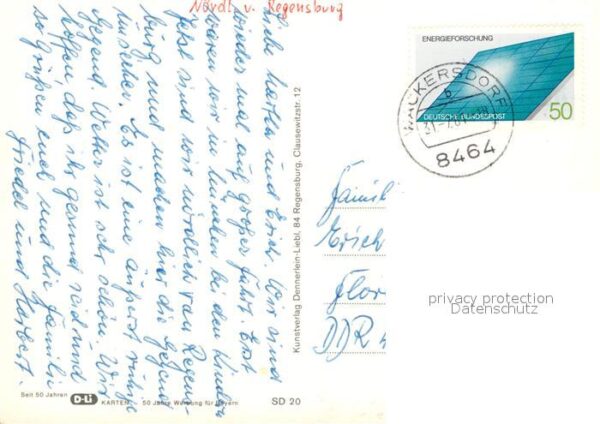 Nördl. v. Regensburg
Liebe Martha und Erich. Wir sind
wieder mal auf großer Fahrt. Erst
waren wir in München bei den Kindern
jetzt sind wir nördlich von Regens-
burg und machen hier die Gegend
unsicher. Es ist eine äußerst ruhige
Gegend. Wetter ist sehr schön. Wir
hoffen das ihr gesund seid und
so grüßen euch und die Familie
Friedel und Herbert.
Kunstverlag Dennerlein-Liebl, 84 Regensburg, Clausewitzstr. 12
ENERGIEFORSCHUNG
DEUTSCHE BUNDESPOST
50
WACKERSDORF
b
8464
Famili
Erich
Flor
DDR
privacy protection
Datenschutz
Seit 50 Jahren D-Li KARTEN - 50 Jahre Werbung für Bayern
SD 20